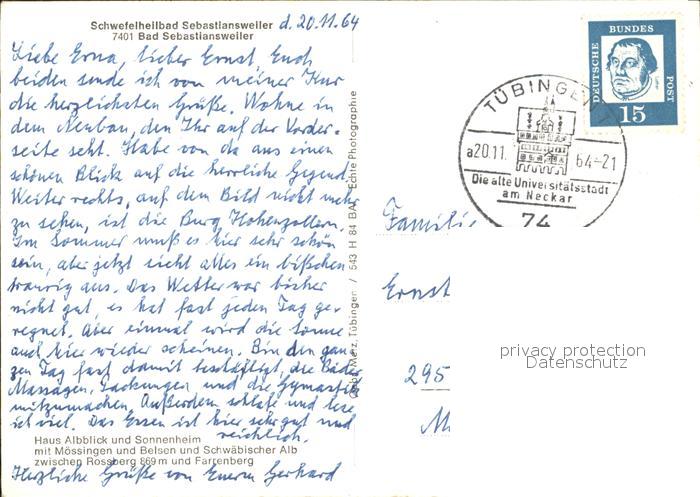 Schwefelheilbad Sebastiansweiler
7401 Bad Sebastiansweiler
d. 20.11.64
Liebe Erna, lieber Ernst, Euch
beiden sende ich von meiner Kur
die herzlichsten Grüße. Wohne in
dem Neubau, den Ihr auf der Vorder-
seite seht. Habe von da aus einen
schönen Blick auf die herrliche Gegend.
Weiter rechts, auf dem Bild nicht mehr
zu sehen, ist die Burg Hohenzollern.
Im Sommer muß es hier sehr schön
sein, aber jetzt sieht alles ein bißchen
traurig aus. Das Wetter war bisher
nicht gut, es hat fast jeden Tag ge-
regnet. Aber einmal wird die Sonne
auch hier wieder scheinen. Bin den gan-
zen Tag fast damit beschäftigt, die Bäder
Massagen, Packungen und die Gymastik
mitzumachen. Außerdem schlafe und lese
ich viel. Das Essen ist hier sehr gut und
reichlich.
Haus Albblick und Sonnenheim
mit Mössingen und Belsen und Schwäbischer Alb
zwischen Rossberg 869 m und Farrenberg
Herzliche Grüße von Eurem Gerhard
Metz, Tübingen / 543 H 84 BA / Echte Photographie
DEUTSCHE
BUNDES
POST
15
TÜBINGEN
a20.11. 64-21
Die alte Universitätsstadt
am Neckar
74
Familie
Ernst
295
M
privacy protection
Datenschutz